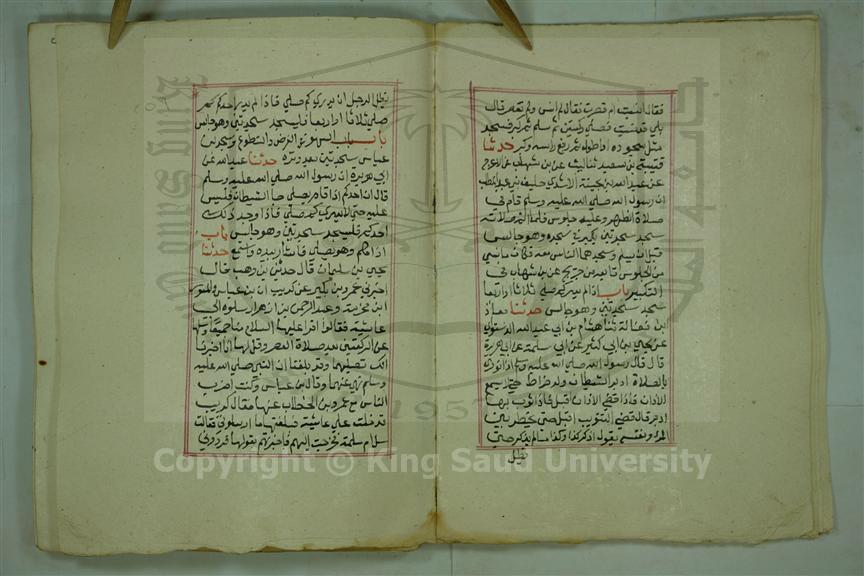 فقال انسيت ام قصرت فقال لم انس ولم تقصر قال
بلى قد نسيت فصلى ركعتين ثم سلم ثم كبر فسجد
مثل سجوده او اطول ثم رفع راسه وكبر حدثنا
قتيبة بن سعيد ثنا ليث عن بن شهاب عن الاعرج
عن عبد الله بن بحينة الاسدي حليف بني عبد المطلب
ان رسول الله صلى الله عليه وسلم قام في
صلاة الظهر وعليه جلوس فلما اتم صلاته
سجد سجدتين يكبر في سجدة وهو جالس
قبل ان يسلم وسجدهما الناس معه مكان ما نسي
من الجلوس تابعه بن جريج عن بن شهاب في
التكبير باب اذا لم يدر كم صلى ثلاثا او اربعا
سجد سجدتين وهو جالس حدثنا معاذ
ابن فضالة ثنا هشام بن ابي عبد الله الدستوائي
عن يحيى بن ابي كثير عن ابي سلمة عن ابي هريرة
قال قال رسول الله صلى الله عليه وسلم اذا نودي
بالصلاة ادبر الشيطان وله ضراط حتى لا يسمع
الاذان فاذا قضي الاذان اقبل فاذا ثوب بها
ادبر فاذا قضي التثويب اقبل حتى يخطر بين
المرء ونفسه يقول اذكر كذا وكذا ما لم يذكر حتى
يظل
يظل الرجل ان يدري كم صلى فاذا لم يدر احدكم كم
صلى ثلاثا او اربعا فليسجد سجدتين وهو جالس
باب السهو في الفرض والتطوع وسجد بن
عباس سجدتين بعد وتره حدثنا عبد الله عن
ابي هريرة ان رسول الله صلى الله عليه وسلم
قال ان احدكم اذا قام يصلي جا الشيطان فلبس
عليه حتى لا يدري كم صلى فاذا وجد ذلك
احدكم فليسجد سجدتين وهو جالس باب
اذا كلم وهو يصلي فاشار بيده واستمع حدثنا
يحيى بن سليمان قال حدثني بن وهب قال
اخبرني عمرو عن بكير عن كريب ان بن عباس والمسور
ابن مخرمة وعبد الرحمن بن ازهر ارسلوه الى
عائشة فقالوا اقرا عليها السلام منا جميعا وسلها
عن الركعتين بعد صلاة العصر وقل لها انا اخبرنا
انك تصلينهما وقد بلغنا ان النبي صلى الله عليه
وسلم نهى عنهما وقال بن عباس وكنت اضرب
الناس مع عمر بن الخطاب عنهما فقال كريب
فدخلت على عائشة فبلغتها ما ارسلوني فقالت
سل ام سلمة فخرجت اليهم فاخبرتهم بقولها فردوني
Copyright © King Saud University
1957